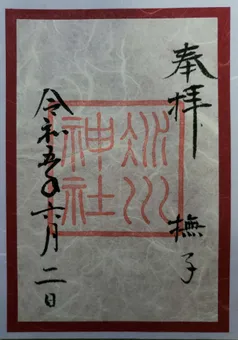 奉拝 撫子
氷川
神社
令和五年六月二日